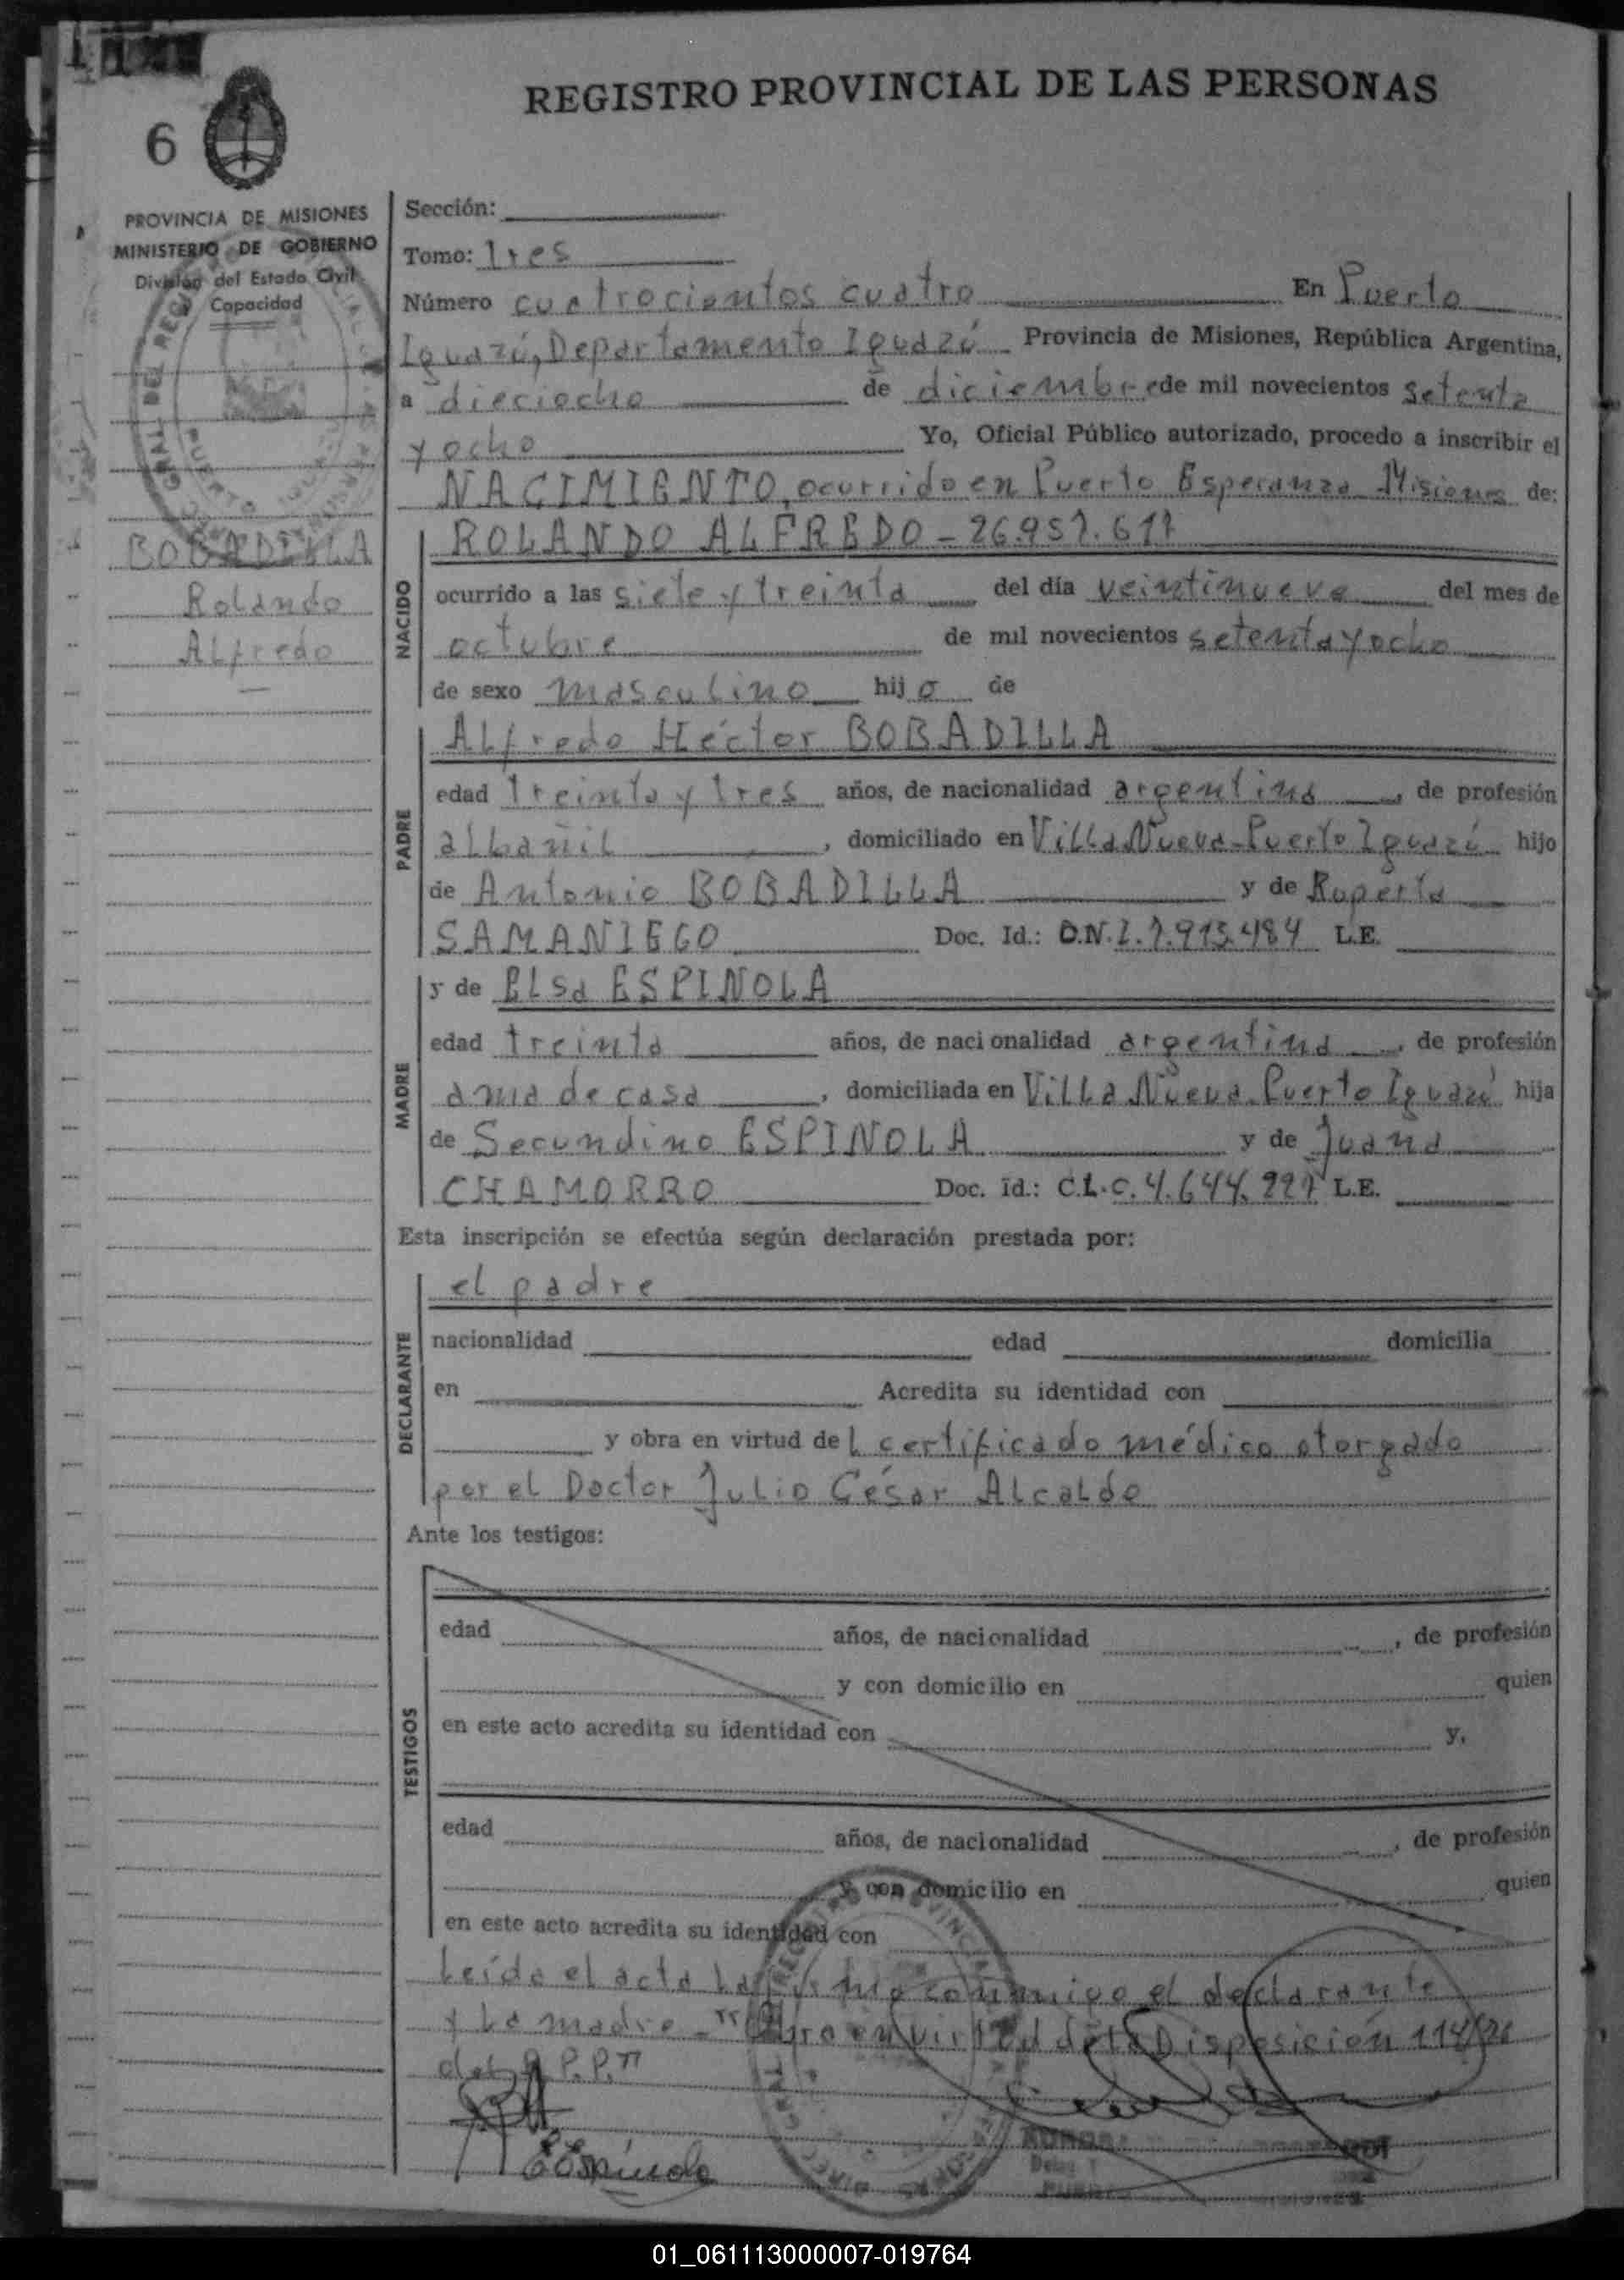 REGISTRO PROVINCIAL DE LAS PERSONAS
6
PROVINCIA DE MISIONES
MINISTERIO DE GOBIERNO
División del Estado Civil
Capacidad
BOBADILLA
Rolando
Alfredo
Sección:
Tomo: Tres
Número cuatrocientos cuatro En Puerto
Iguazú, Departamento Iguazú Provincia de Misiones, República Argentina,
a dieciocho de diciembre de mil novecientos setenta
y ocho Yo, Oficial Público autorizado, procedo a inscribir el
NACIMIENTO, ocurrido en Puerto Esperanza Misiones de:
NACIDO
ROLANDO ALFREDO - 26.957.617
ocurrido a las siete y treinta del día veintinueve del mes de
octubre de mil novecientos setenta y ocho
de sexo masculino hijo de
PADRE
Alfredo Héctor BOBADILLA
edad treinta y tres años, de nacionalidad argentina, de profesión
albañil, domiciliado en Villa Nueva - Puerto Iguazú hijo
de Antonio BOBADILLA y de Ruperta
SAMANIEGO Doc. Id.: D.N.I. 7.913.484 L.E.
MADRE
y de Elsa ESPINOLA
edad treinta años, de nacionalidad argentina, de profesión
ama de casa, domiciliada en Villa Nueva - Puerto Iguazú hija
de Secundino ESPINOLA y de Juana
CHAMORRO Doc. Id.: C.L.C. 4.644.227 L.E.
Esta inscripción se efectúa según declaración prestada por:
DECLARANTE
el padre
nacionalidad edad domicilia
en Acredita su identidad con
y obra en virtud del certificado médico otorgado
por el Doctor Julio César Alcalde
Ante los testigos:
TESTIGOS
edad años, de nacionalidad , de profesión
y con domicilio en quien
en este acto acredita su identidad con y,
edad años, de nacionalidad , de profesión
y con domicilio en quien
en este acto acredita su identidad con
Leída el acta la firma conmigo el declarante
y la madre - en virtud de la Disposición
del R.P.P."
EEspínola
01_061113000007-019764